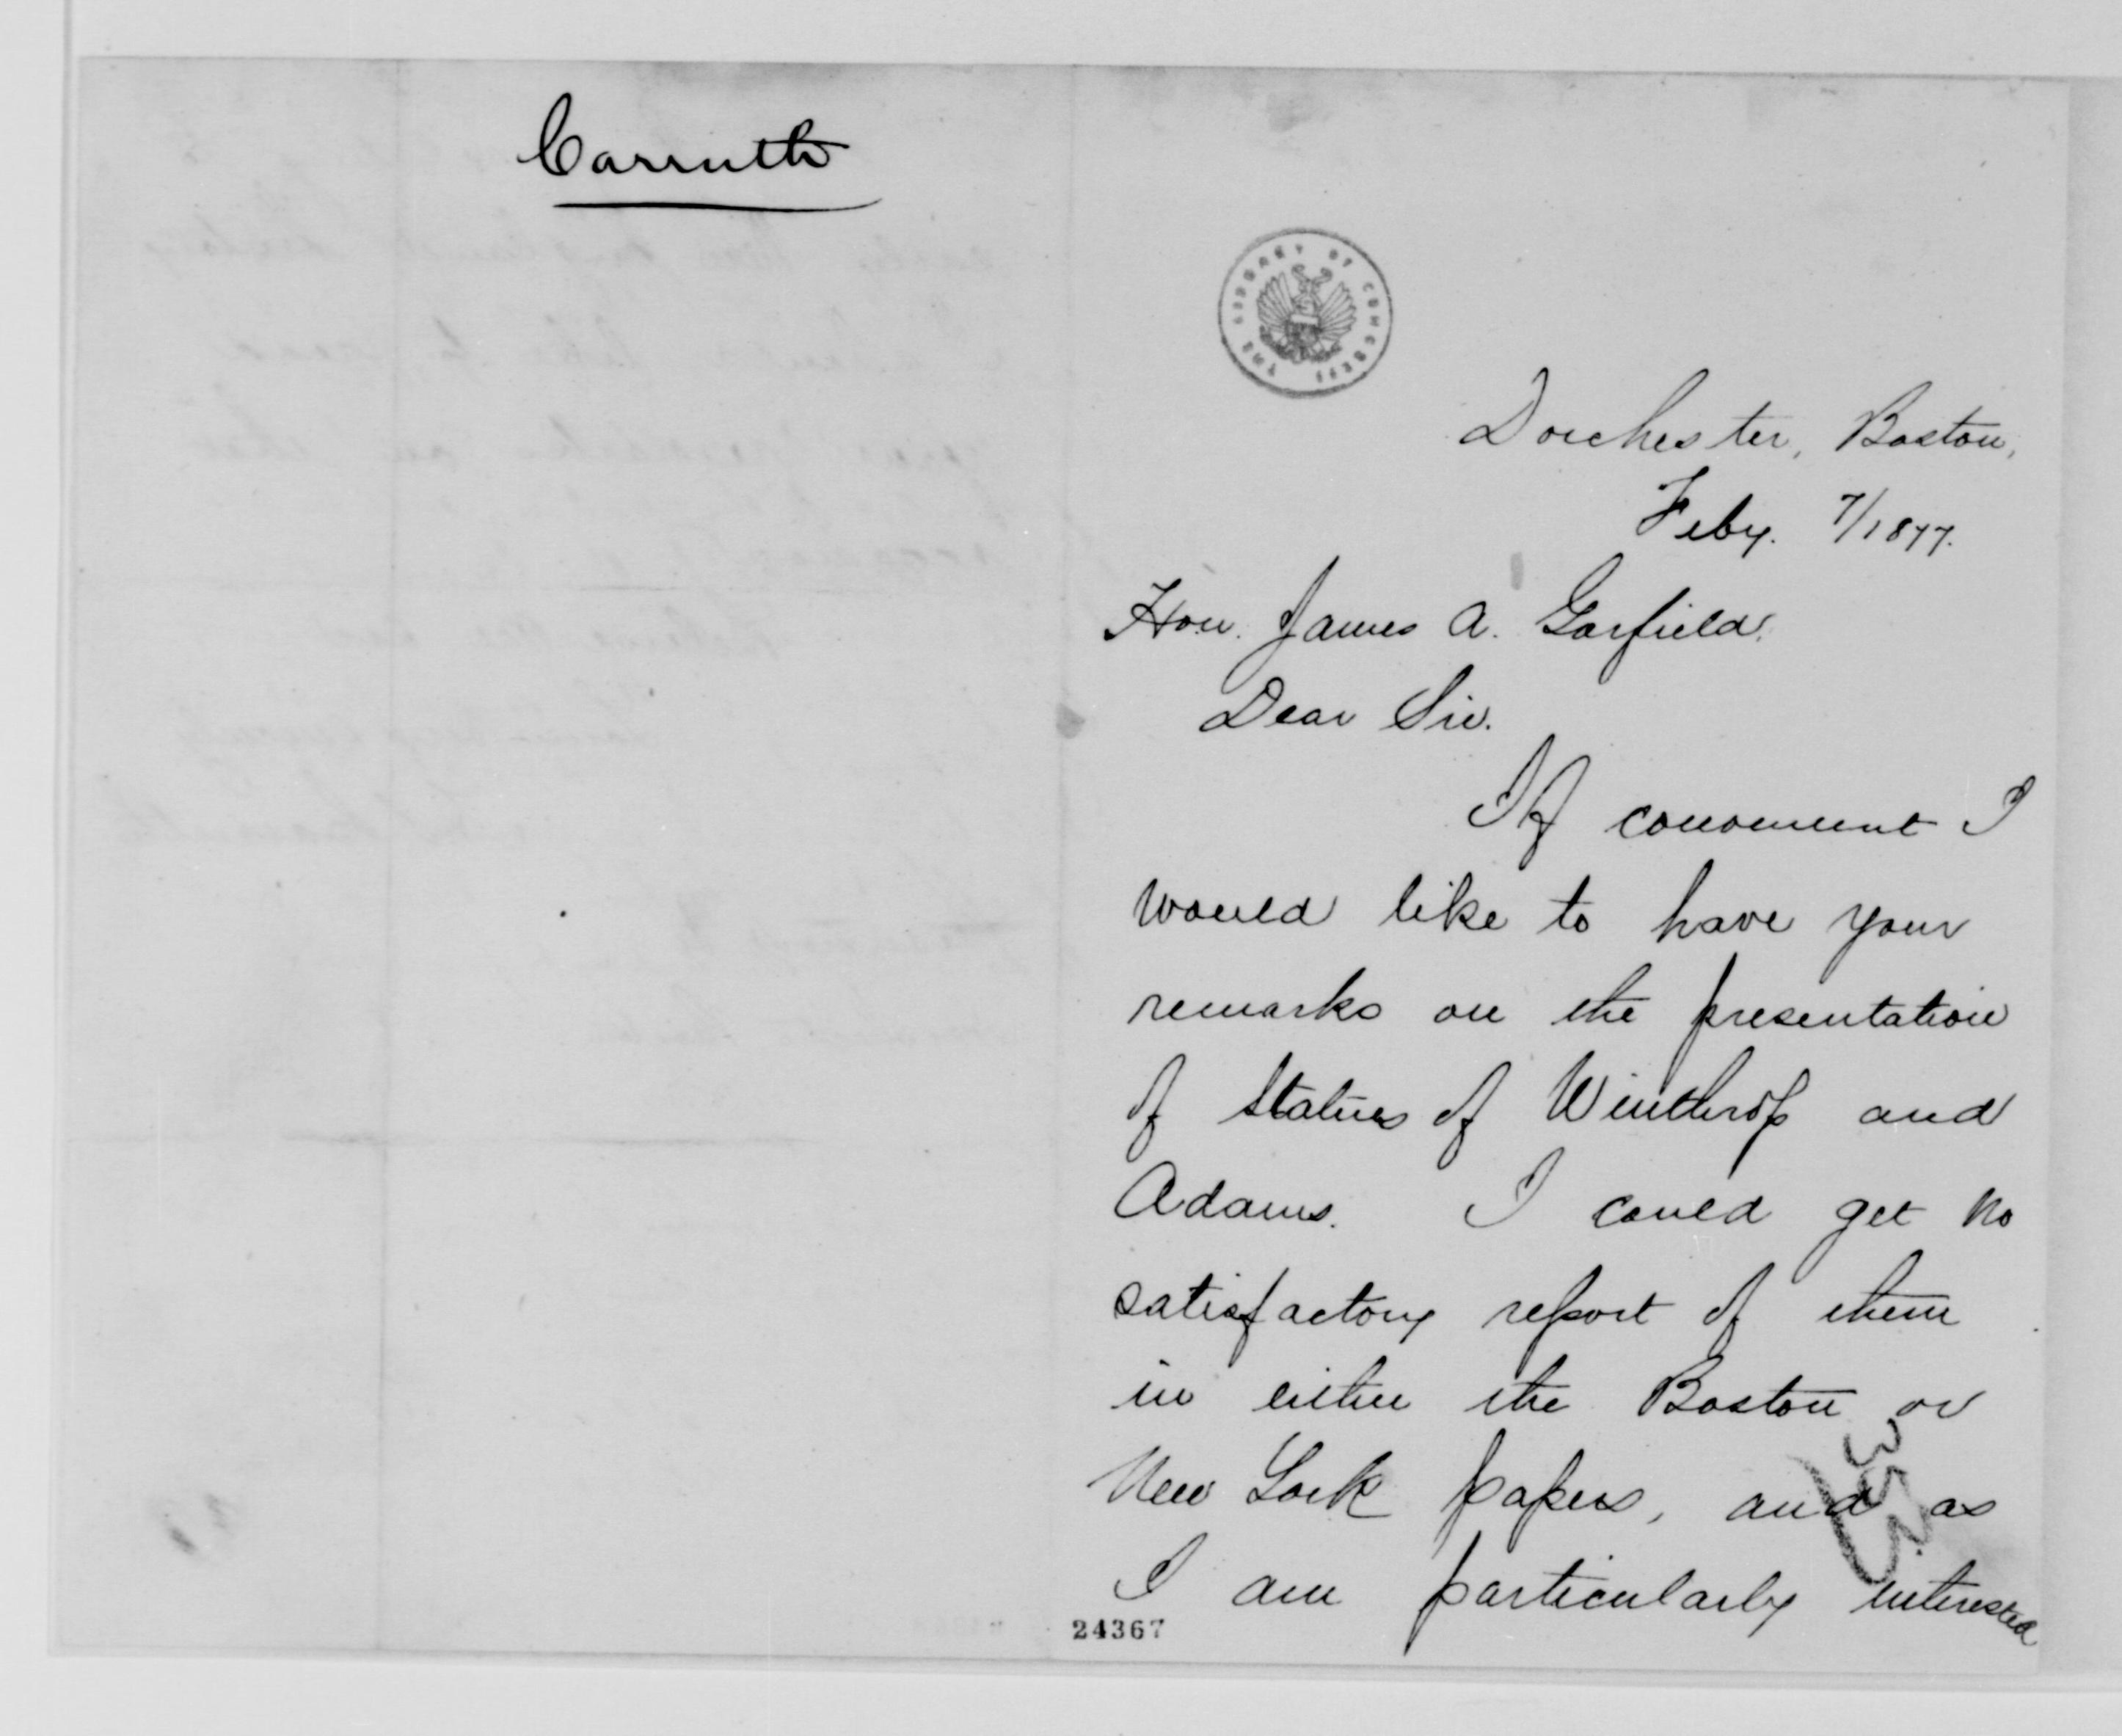 Carruth
THE LIBRARY OF CONGRESS
Dorchester, Boston,
Feby. 7/1877.
Hon. James A. Garfield.
Dear Sir.
If convenient I
would like to have your
remarks on the presentation
of Statues of Winthrop and
Adams. I could get no
satisfactory report of them
in either the Boston or
New York papers, and as
I am particularly interested
24367